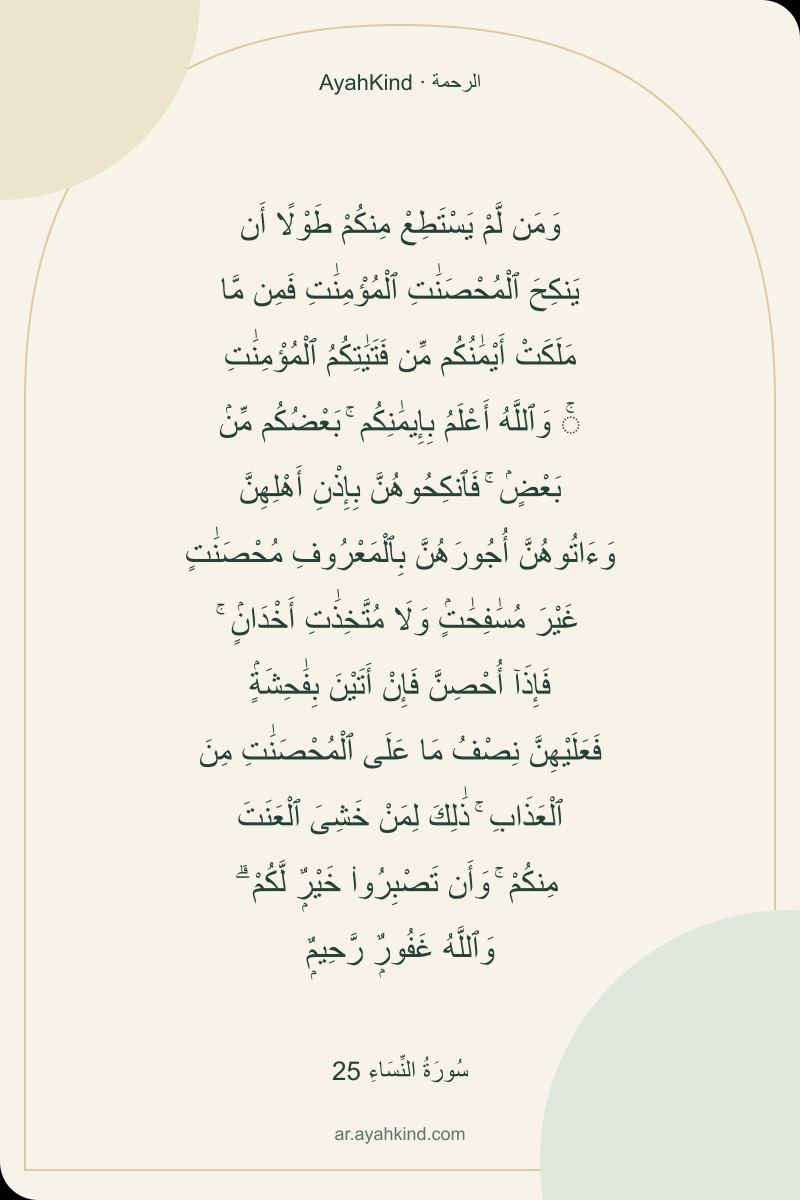 AyahKind · الرحمة
وَمَن لَّمْ يَسْتَطِعْ مِنكُمْ طَوْلًا أَن
يَنكِحَ ٱلْمُحْصَنَٰتِ ٱلْمُؤْمِنَٰتِ فَمِن مَّا
مَلَكَتْ أَيْمَٰنُكُم مِّن فَتَيَٰتِكُمُ ٱلْمُؤْمِنَٰتِ
ۚ وَٱللَّهُ أَعْلَمُ بِإِيمَٰنِكُم ۚ بَعْضُكُم مِّنۢ
بَعْضٍۢ ۚ فَٱنكِحُوهُنَّ بِإِذْنِ أَهْلِهِنَّ
وَءَاتُوهُنَّ أُجُورَهُنَّ بِٱلْمَعْرُوفِ مُحْصَنَٰتٍ
غَيْرَ مُسَٰفِحَٰتٍۢ وَلَا مُتَّخِذَٰتِ أَخْدَانٍۢ ۚ
فَإِذَآ أُحْصِنَّ فَإِنْ أَتَيْنَ بِفَٰحِشَةٍۢ
فَعَلَيْهِنَّ نِصْفُ مَا عَلَى ٱلْمُحْصَنَٰتِ مِنَ
ٱلْعَذَابِ ۚ ذَٰلِكَ لِمَنْ خَشِىَ ٱلْعَنَتَ
مِنكُمْ ۚ وَأَن تَصْبِرُوا۟ خَيْرٌۭ لَّكُمْ ۗ
وَٱللَّهُ غَفُورٌۭ رَّحِيمٌۭ
سُورَةُ النِّسَاءِ 25
ar.ayahkind.com